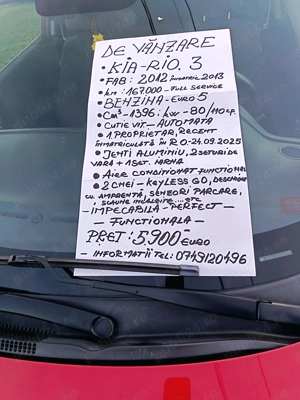 DE VÂNZARE
• KIA-RIO. 3
• FAB: 2012 ÎNMATRIC 2013
• km: 167.000 - FULL SERVICE
• BENZINA - EURO 5
• Cm³ - 1396. kw - 80/110 cp.
• CUTIE VIT - AUTOMATA
• 1 PROPRIETAR, RECENT
ÎNMATRICULATĂ ÎN RO-24.09.2025
• JENȚI ALUMINIU, 2 SETURI DE
VARĂ + 1 SET. IARNĂ
• AIER CONDITIONAT FUNCTIONAL
• 2 CHEI - KEYLESS GO, DESCHIDERE
CU AMPRENTĂ, SENZORI PARCARE,
SCAUNE ÎNCĂLZITE ... etc
- IMPECABILĂ - PERFECT -
- FUNCTIONALA -
PREȚ: 5900 EURO
- INFORMAȚII TEL: 0749120496